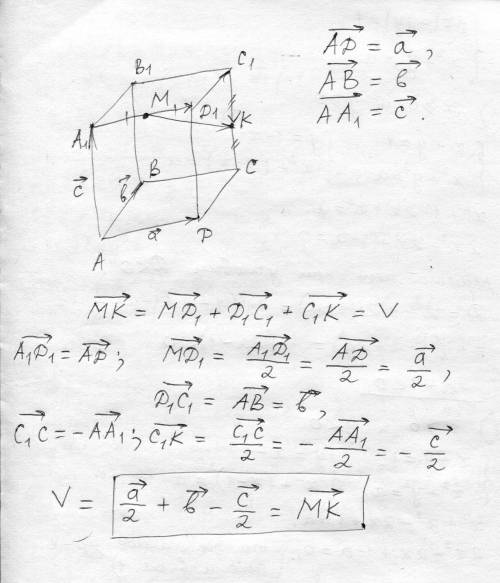 AD→ = a→,
AB→ = b→
AA₁→ = c→.
B₁ C₁
M D₁ K
A₁
c→ b→ B C
a→ D
A
MK→ = MD₁→ + D₁C₁→ + C₁K→ = V
A₁D₁→ = AD→; MD₁→ = A₁D₁→/2 = AD→/2 = a→/2,
D₁C₁→ = AB→ = b→,
C₁C→ = -AA₁→; C₁K→ = C₁C→/2 = -AA₁→/2 = -c→/2
V = a→/2 + b→ - c→/2 = MK→